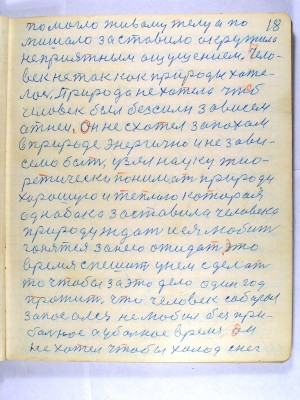 18
помогло живому телу а по
мишало заставило окружило
неприятным ощущением. Чело-
век не так как природы хоте-
лос. Природа не хотела чтоб
человек был безсилн зависем
от неи. Он не схотел запохам
в природе энергично и не зави-
семо быть, узел науку тио-
ретически понимат природу
хорошую и теплаю которая
однобако заставила человека
природу ждат и ея любит
гонятся за нею ожидат. Это
время спешит у нем сделат
то чтобы за это дело один год
прожит. что человек собою
запасался не мобил без при-
балное а убалное время, он
не хотел чтобы холод снег